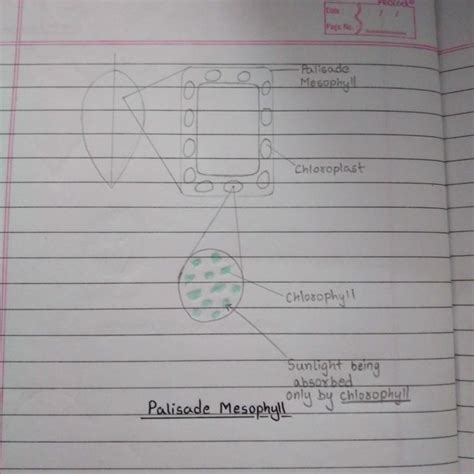 Date
Page No.
Palisade
Mesophyll
Chloroplast
Chlorophyll
Sunlight being
absorbed
only by chlorophyll
Palisade Mesophyll